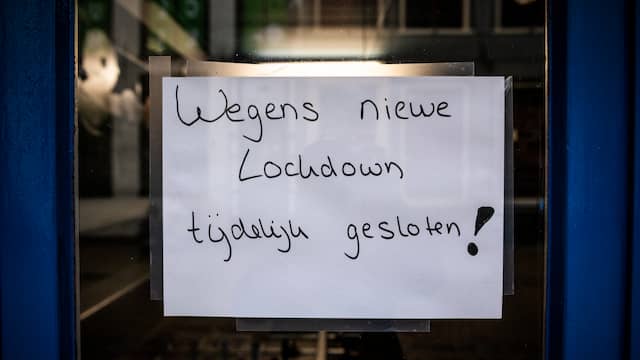 Wegens niewe
Lockdown
tijdelijk gesloten!